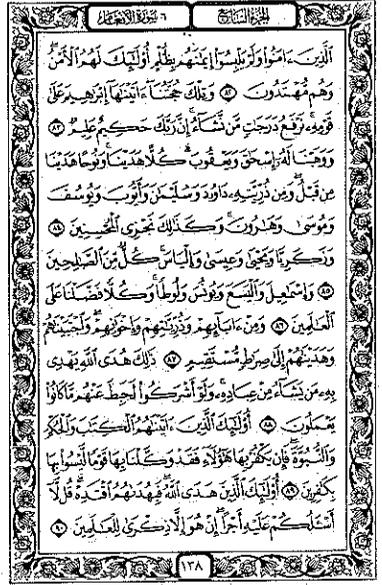 الجزء السابع ٦ سورة الأنعام
الَّذِينَ ءَامَنُوا وَلَمْ يَلْبِسُوا إِيمَٰنَهُم بِظُلْمٍ أُوْلَٰٓئِكَ لَهُمُ الْأَمْنُ
وَهُم مُّهْتَدُونَ ٨٢ وَتِلْكَ حُجَّتُنَا ءَاتَيْنَٰهَا إِبْرَٰهِيمَ عَلَىٰ
قَوْمِهِۦ نَرْفَعُ دَرَجَٰتٍ مَّن نَّشَآءُ إِنَّ رَبَّكَ حَكِيمٌ عَلِيمٌ ٨٣
وَوَهَبْنَا لَهُۥٓ إِسْحَٰقَ وَيَعْقُوبَ كُلًّا هَدَيْنَا وَنُوحًا هَدَيْنَا
مِن قَبْلُ وَمِن ذُرِّيَّتِهِۦ دَاوُۥدَ وَسُلَيْمَٰنَ وَأَيُّوبَ وَيُوسُفَ
وَمُوسَىٰ وَهَٰرُونَ وَكَذَٰلِكَ نَجْزِي الْمُحْسِنِينَ ٨٤
وَزَكَرِيَّا وَيَحْيَىٰ وَعِيسَىٰ وَإِلْيَاسَ كُلٌّ مِّنَ الصَّٰلِحِينَ
٨٥ وَإِسْمَٰعِيلَ وَالْيَسَعَ وَيُونُسَ وَلُوطًا وَكُلًّا فَضَّلْنَا عَلَى
الْعَٰلَمِينَ ٨٦ وَمِنْ ءَابَآئِهِمْ وَذُرِّيَّٰتِهِمْ وَإِخْوَٰنِهِمْ وَاجْتَبَيْنَٰهُمْ
وَهَدَيْنَٰهُمْ إِلَىٰ صِرَٰطٍ مُّسْتَقِيمٍ ٨٧ ذَٰلِكَ هُدَى اللَّهِ يَهْدِي
بِهِۦ مَن يَشَآءُ مِنْ عِبَادِهِۦ وَلَوْ أَشْرَكُوا لَحَبِطَ عَنْهُم مَّا كَانُوا
يَعْمَلُونَ ٨٨ أُوْلَٰٓئِكَ الَّذِينَ ءَاتَيْنَٰهُمُ الْكِتَٰبَ وَالْحُكْمَ
وَالنُّبُوَّةَ فَإِن يَكْفُرْ بِهَا هَٰٓؤُلَآءِ فَقَدْ وَكَّلْنَا بِهَا قَوْمًا لَّيْسُوا بِهَا
بِكَٰفِرِينَ ٨٩ أُوْلَٰٓئِكَ الَّذِينَ هَدَى اللَّهُ فَبِهُدَىٰهُمُ اقْتَدِهْ قُل لَّآ
أَسْـَٔلُكُمْ عَلَيْهِ أَجْرًا إِنْ هُوَ إِلَّا ذِكْرَىٰ لِلْعَٰلَمِينَ ٩٠
١٣٨